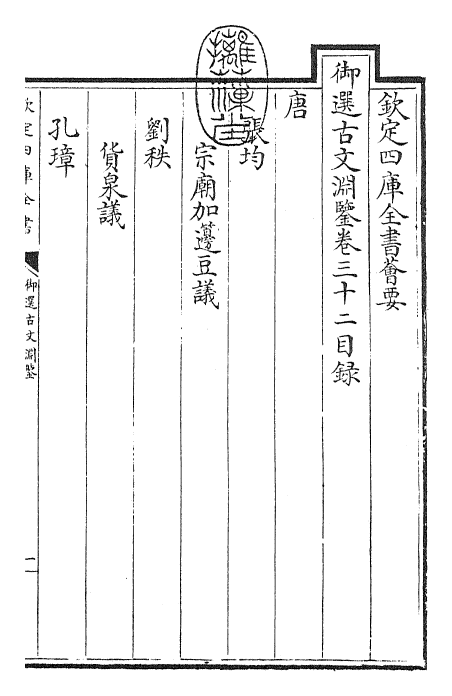 欽定四庫全書薈要
御選古文淵鑒卷三十二目錄
唐
張均
宗廟加籩豆議
劉秩
貨泉議
孔璋
欽定四庫全書
御選古文淵鑒